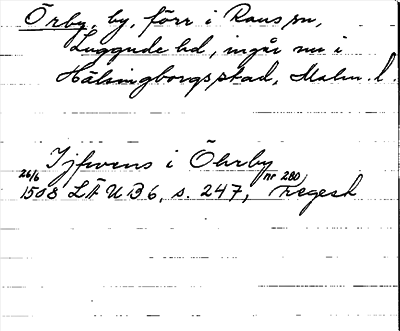 Örby, by, förr i Raus sn,
Luggude hd, ingår nu i
Hälsingborgs stad, Malm. l.
Tjfwens i Öhrby
26/6 nr 280
1508 LÄUB 6, s. 247, Regest